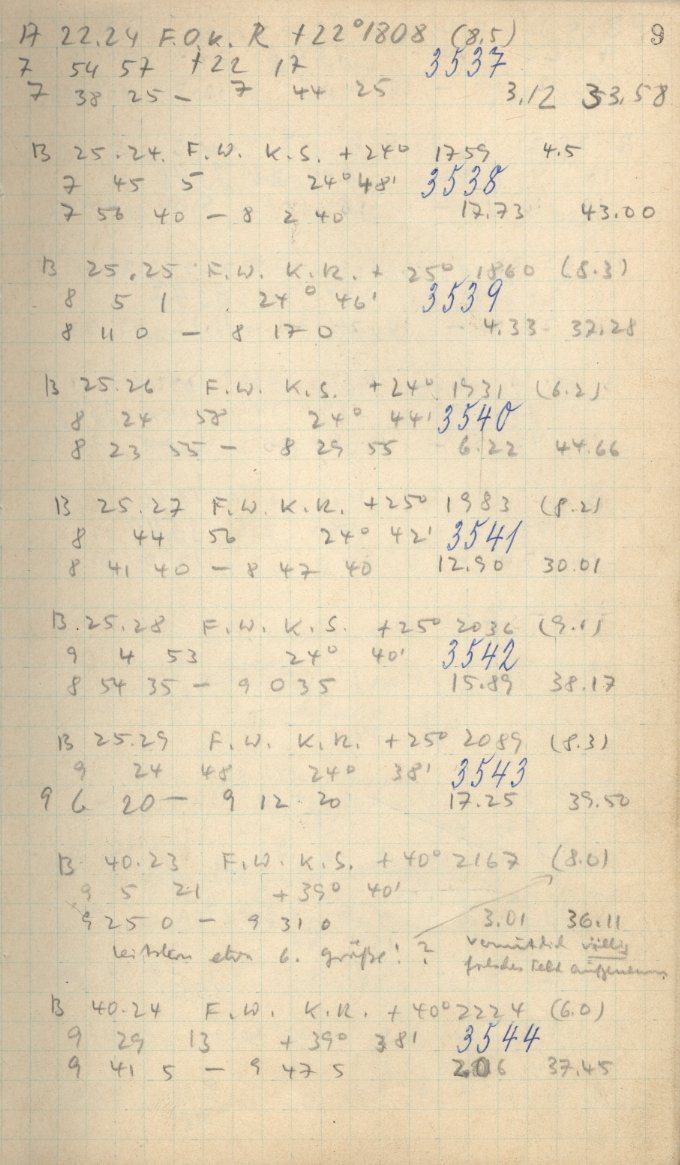 9
A 22.24 F.O.K. R +22° 1808 (8.5)
7 54 57 +22 17 3537
7 38 25 – 7 44 25 3.12 33.58
B 25.24. F.W. K.S. +24° 1759 4.5
7 45 5 24° 48' 3538
7 56 40 – 8 2 40 17.73 43.00
B 25.25 F.W. K.R. + 25° 1860 (8.3)
8 5 1 24° 46' 3539
8 11 0 – 8 17 0 4.33 32.28
B 25.26 F.W. K.S. +24° 1931 (6.2)
8 24 58 24° 44' 3540
8 23 55 – 8 29 55 6.22 44.66
B 25.27 F.W. K.R. +25° 1983 (8.2)
8 44 56 24° 42' 3541
8 41 40 – 8 47 40 12.90 30.01
B.25.28 F.W. K.S. +25° 2036 (9.1)
9 4 53 24° 40' 3542
8 54 35 – 9 0 35 15.89 38.17
B 25.29 F.W. K.R. +25° 2089 (8.3)
9 24 48 24° 38' 3543
9 6 20 – 9 12 20 17.25 39.50
B 40.23 F.W. K.S. +40° 2167 (8.0)
9 5 21 +39° 40'
9 25 0 – 9 31 0 3.01 36.11
Leitstern etwa 6. Größe! ? vermutlich völlig
falsches Feld aufgenommen
B 40.24 F.W. K.R. +40° 2224 (6.0)
9 29 13 +39° 38' 3544
9 41 5 – 9 47 5 2.06 37.45